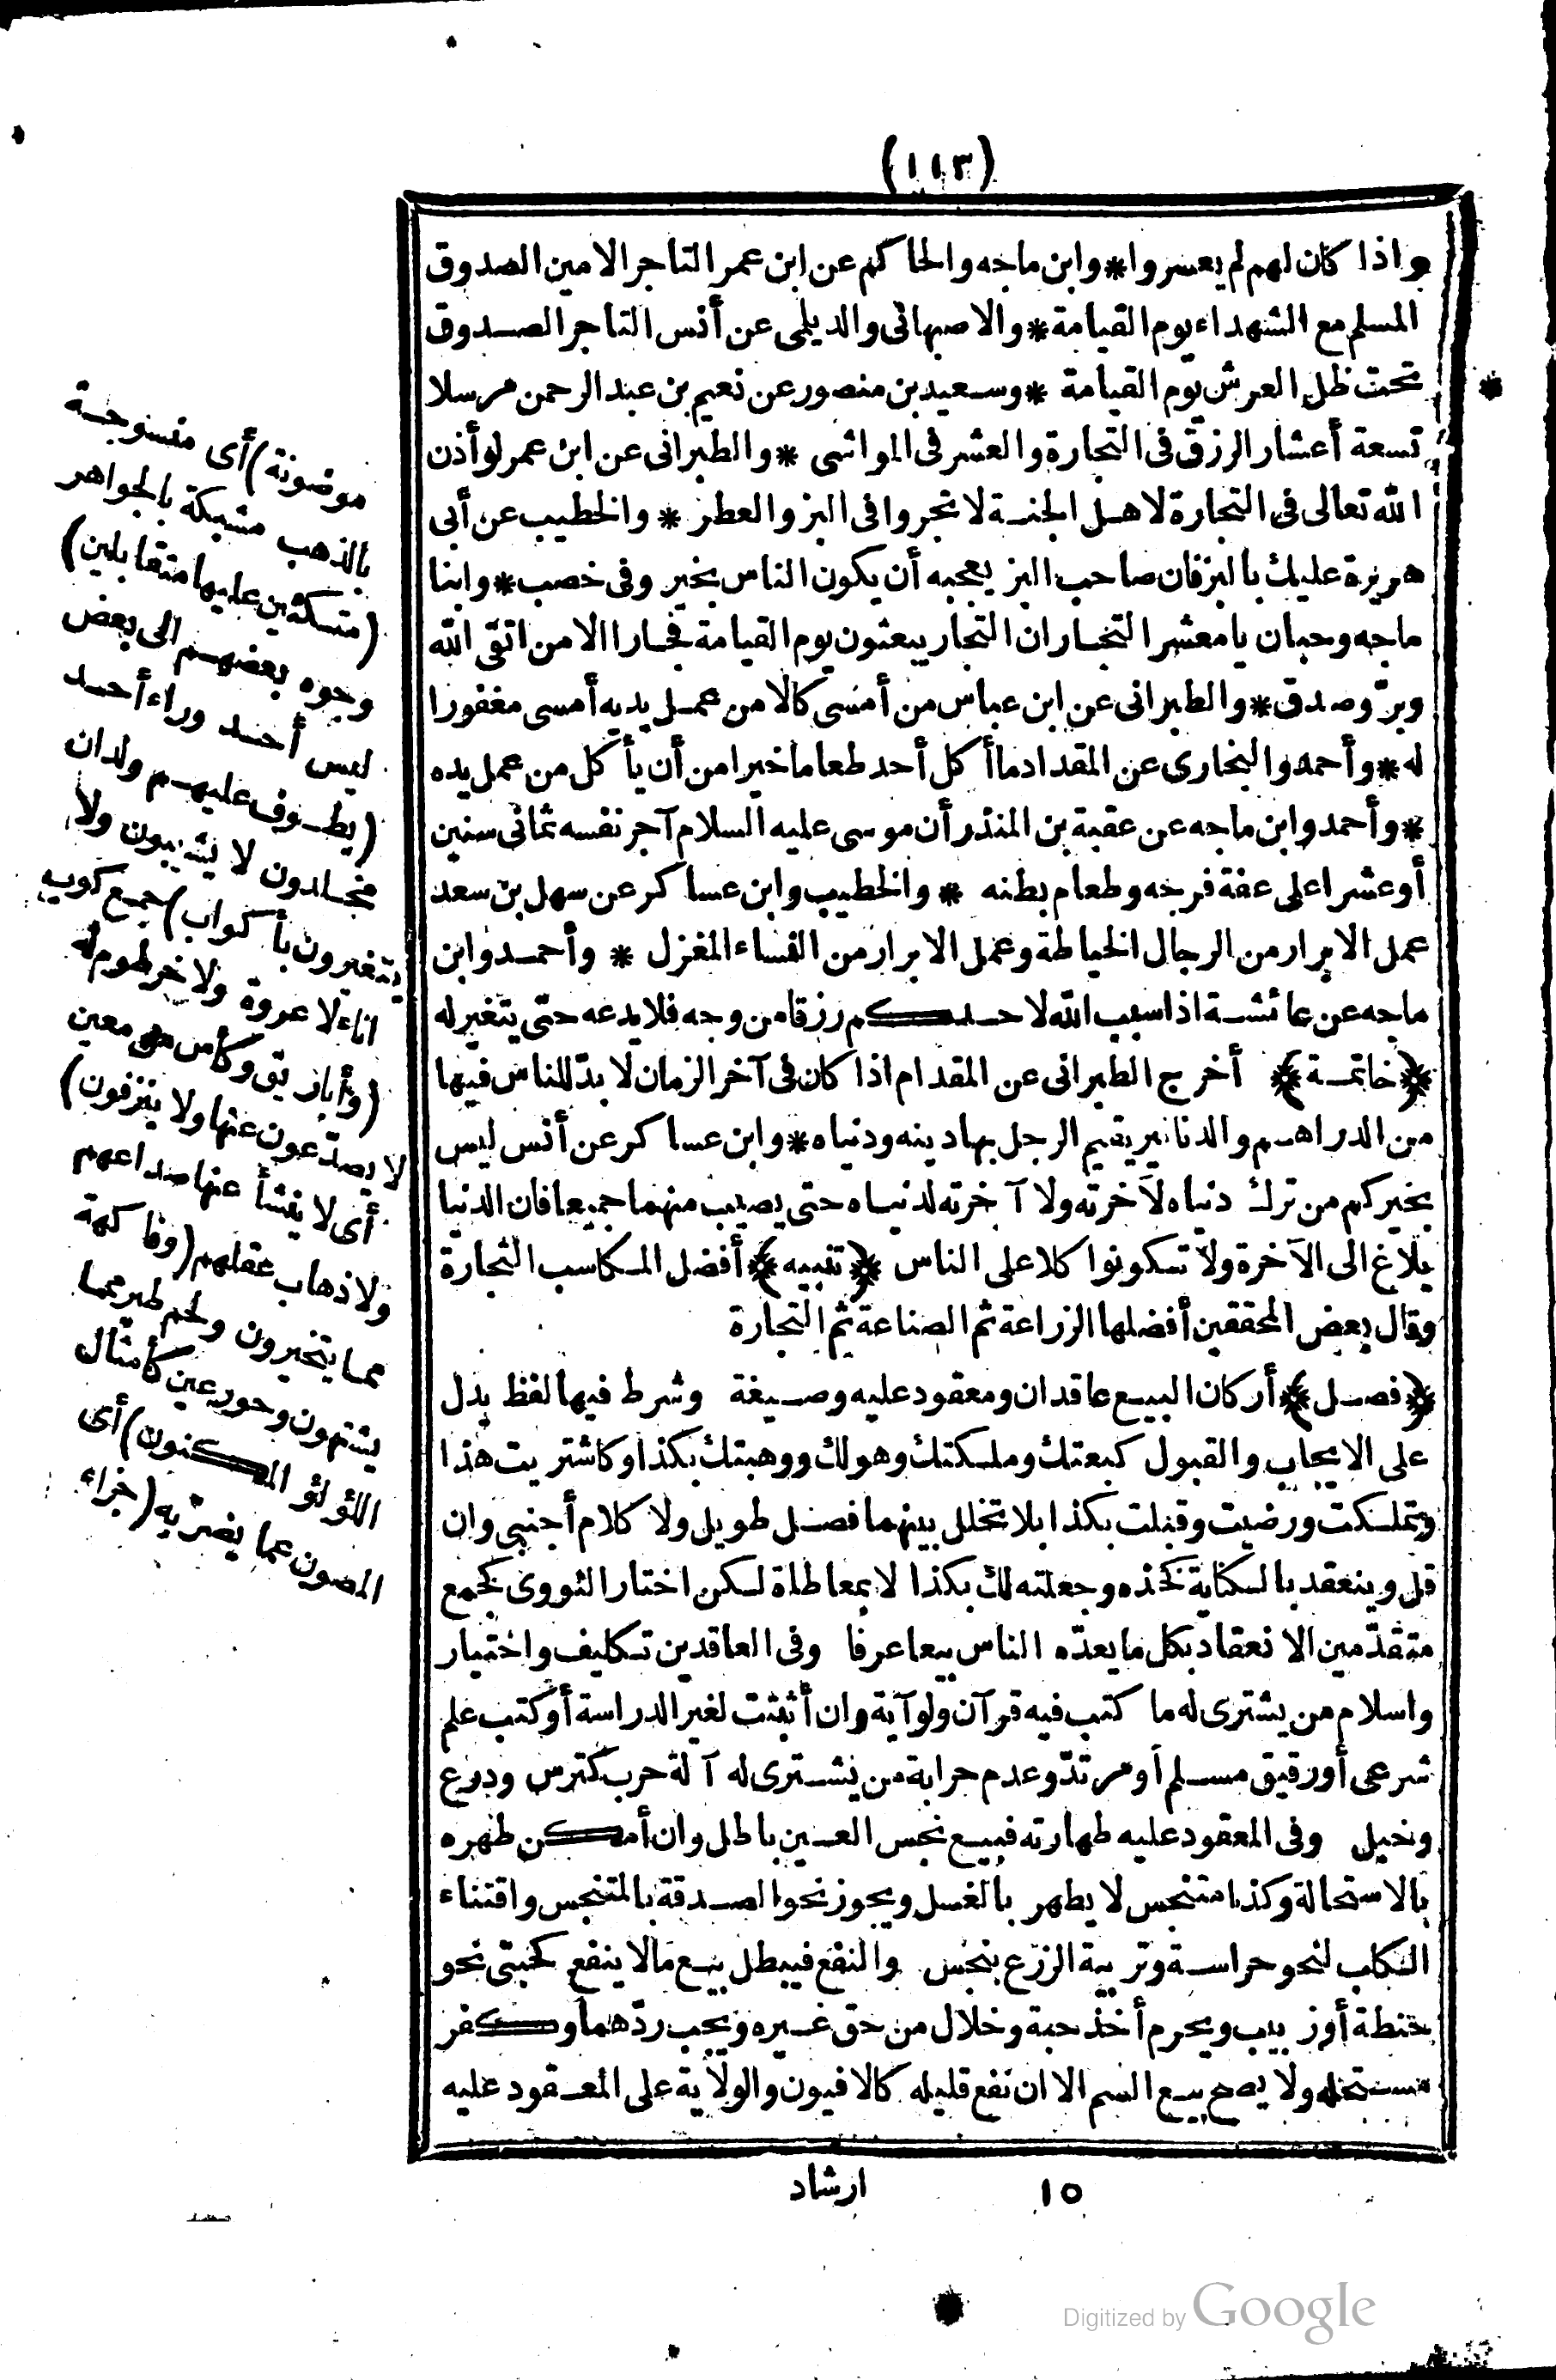 (١١٣)
واذا كان لهم لم يعسروا * وابن ماجه والحاكم عن ابن عمر التاجر الامين الصدوق
المسلم مع الشهداء يوم القيامة * والاصبهانى والديلمى عن أنس التاجر الصدوق
تحت ظل العرش يوم القيامة * وسعيد بن منصور عن نعيم بن عبد الرحمن مرسلا
تسعة أعشار الرزق فى التجارة والعشر فى المواشى * والطبرانى عن ابن عمر لو أذن
الله تعالى فى التجارة لاهل الجنة لاتجروا فى البز والعطر * والخطيب عن أبى
هريرة عليك بالبز فان صاحب البز يعجبه أن يكون الناس بخير وفى خصب * وابنا
ماجه وحبان يا معشر التجار ان التجار يبعثون يوم القيامة فجارا الا من اتقى الله
وبرّ وصدق * والطبرانى عن ابن عباس من أمسى كالا من عمل يديه أمسى مغفورا
له * وأحمد والبخارى عن المقداد ما أكل أحد طعاما خيرا من أن يأكل من عمل يده
* وأحمد وابن ماجه عن عقبة بن المنذر أن موسى عليه السلام آجر نفسه ثمانى سنين
أو عشرا على عفة فرجه وطعام بطنه * والخطيب وابن عساكر عن سهل بن سعد
عمل الابرار من الرجال الخياطة وعمل الابرار من النساء المغزل * وأحمد وابن
ماجه عن عائشة اذا سبب الله لاحدكم رزقا من وجه فلا يدعه حتى يتغير له
﴿خاتمة﴾ أخرج الطبرانى عن المقدام اذا كان فى آخر الزمان لا بدّ للناس فيها
من الدراهم والدنانير يقيم الرجل بها دينه ودنياه * وابن عساكر عن أنس ليس
بخيركم من ترك دنياه لآخرته ولا آخرته لدنياه حتى يصيب منهما جميعا فان الدنيا
بلاغ الى الآخرة ولا تكونوا كلا على الناس ﴿تنبيه﴾ أفضل المكاسب التجارة
وقال بعض المحققين أفضلها الزراعة ثم الصناعة ثم التجارة
﴿فصل﴾ أركان البيع عاقدان ومعقود عليه وصيغة وشرط فيها لفظ يدل
على الايجاب والقبول كبعتك وملكتك وهو لك ووهبتك بكذا وكاشتريت هذا
وتملكت ورضيت وقبلت بكذا بلا تخلل بينهما فصل طويل ولا كلام أجنبى وان
قل وينعقد بالكناية كخذه وجعلته لك بكذا لا بمعاطاة لكن اختار النووى كجمع
متقدّمين الانعقاد بكل ما يعدّه الناس بيعا عرفا وفى العاقدين تكليف واختيار
واسلام من يشترى له ما كتب فيه قرآن ولو آية وان أثبتت لغير الدراسة أو كتب علم
شرعى أو رقيق مسلم أو مرتدّ وعدم حرابة من يشترى له آلة حرب كترس ودرع
وخيل وفى المعقود عليه طهارته فبيع نجس العين باطل وان أمكن طهره
بالاستحالة وكذا متنجس لا يطهر بالغسل ويجوز نحو الصدقة بالمتنجس واقتناء
الكلب لنحو حراسة وتربية الزرع بنجس والنفع فيبطل بيع ما لا ينفع كحبتى نحو
حنطة أو زبيب ويحرم أخذ حبة وخلال من حق غيره ويجب ردّهما وكفر
مستحله ولا يصح بيع السم الا ان نفع قليله كالافيون والولاية على المعقود عليه
١٥ ارشاد
موضونة) أى منسوجة
بالذهب مشبكة بالجواهر
(متكئين عليها متقابلين)
وجوه بعضهم الى بعض
ليس أحد وراء أحد
(يطوف عليهم ولدان
مخلدون لا يشيبون ولا
يتغيرون بأكواب) جمع كوب
اناء لا عروة ولا خرطوم له
(وأباريق وكأس من معين
لا يصدّعون عنها ولا ينزفون)
أى لا ينشأ عنها صداعهم
ولا ذهاب عقلهم (وفاكهة
مما يتخيرون ولحم طير مما
يشتهون وحور عين كأمثال
اللؤلؤ المكنون) أى
المصون عما يضرّ به (جزاء
Digitized by Google